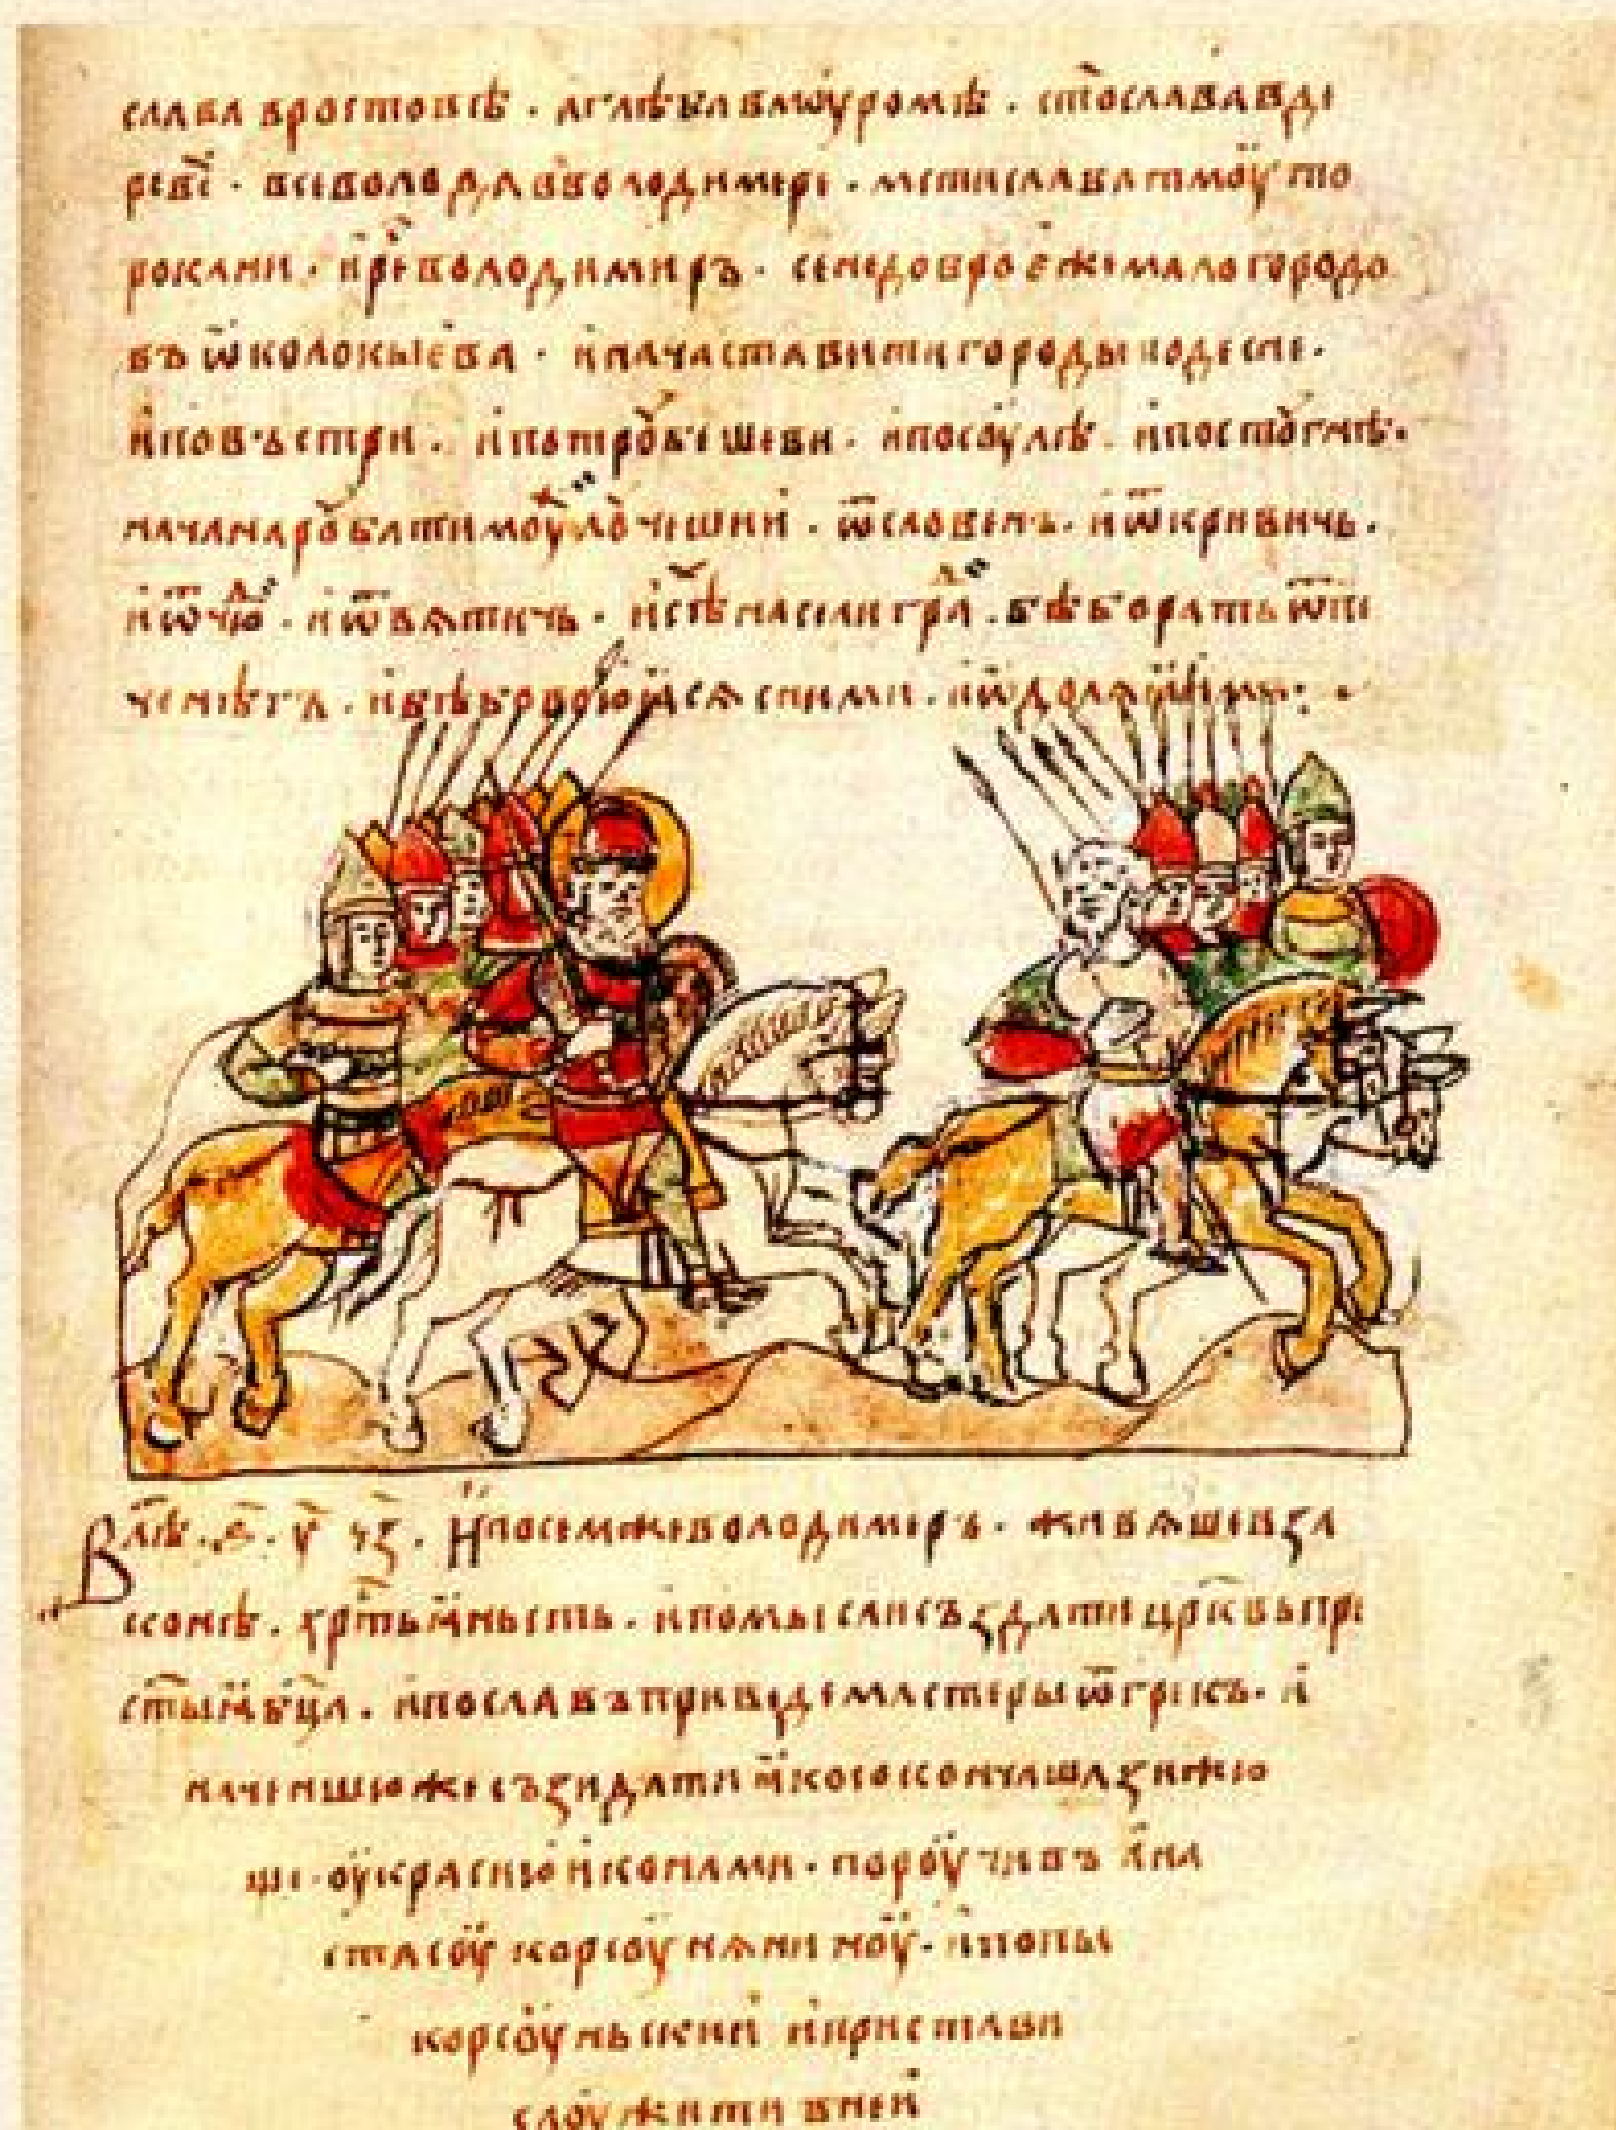 слава вростовѣ · а глѣба вмоуромѣ · ст҃ослава вде
реве · всеволода в володимери · мстислава тмоуто
рокани · и рече володимиръ · се недобро ёже мало городо
въ ѿколо кыева · и нача ставити городы подесне ·
и повъстри · и потробешеви · и посоулѣ · и постогнѣ ·
нача наробати моу лочшии · ѿ словенъ · и ѿ кривичь ·
и ѿ чю · и ѿ вятичь · и с тѣ насели гра · бѣ бо рать ѿ пе
ченѣгъ · и бѣ бо воюяся с ними · и ѿдоляя имъ : ~
В лѣ · ѕ҃ · у҃ · чз · И посемже володимеръ · живяше в за
конѣ · хр҃тьяньсть · и помысли създати цр҃квь пре
ст҃ыя бц҃а · и пославъ приведе мастеры ѿ грекъ · и
наченшю же съзидати яко сокончаша зижю
ще · оукраси ю иконами · пороучивъ ю на
стасоу корсоунянинноу · и попы
корсоуньския и пристави
слоужити в ней